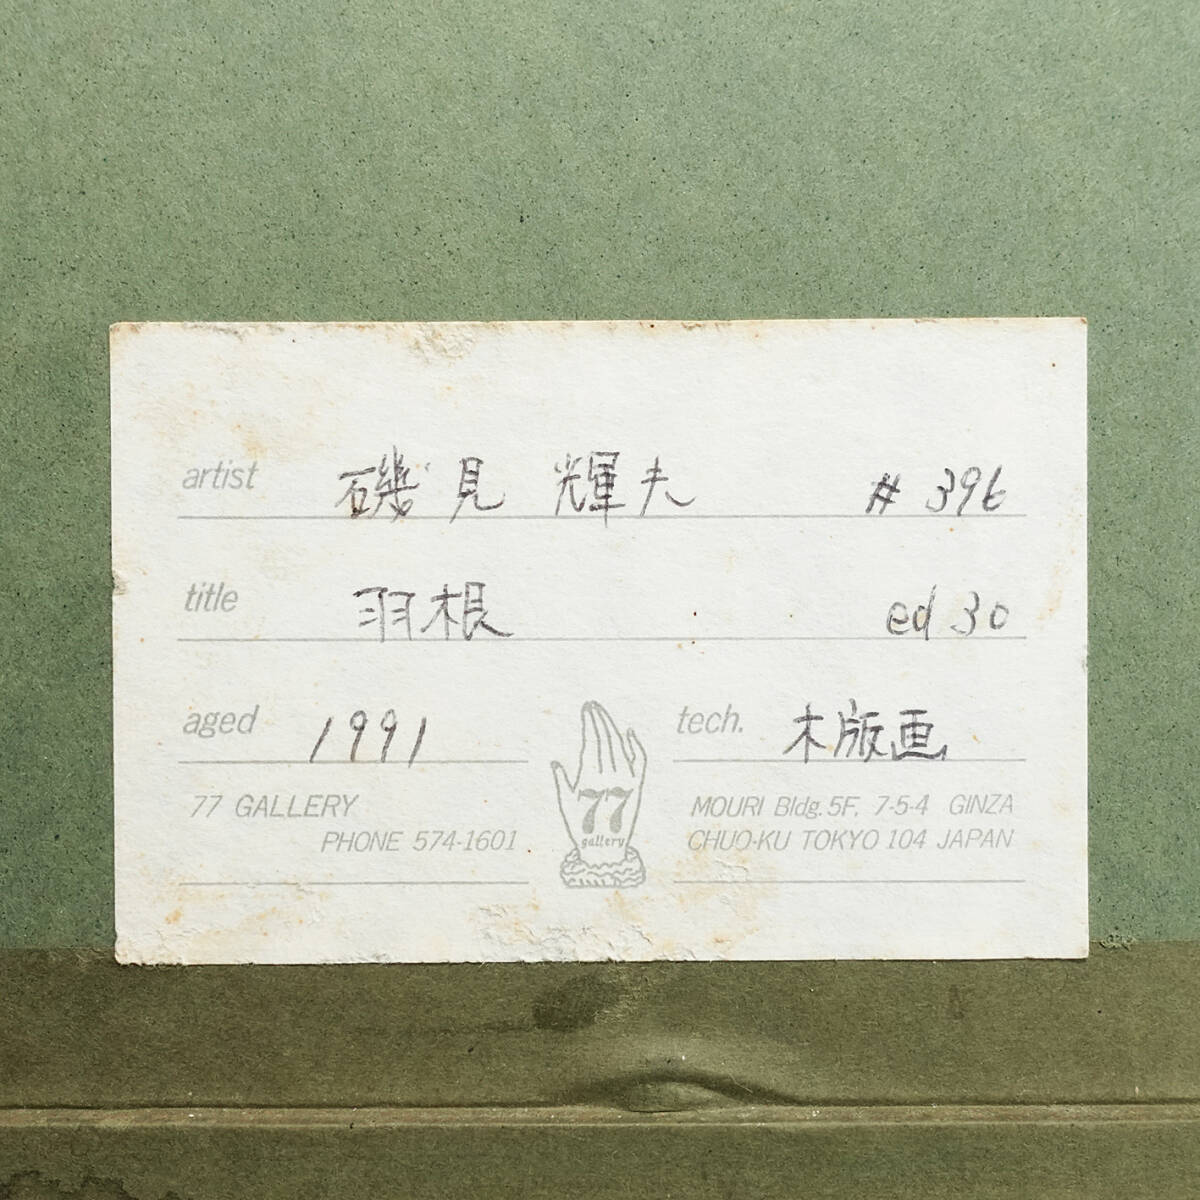 artist 磯見 輝夫 # 396
title 羽根 ed 30
aged 1991 tech.木版画
77 GALLERY
PHONE 574-1601
77
gallery
MOURI Bldg. 5F, 7-5-4 GINZA
CHUO-KU TOKYO 104 JAPAN